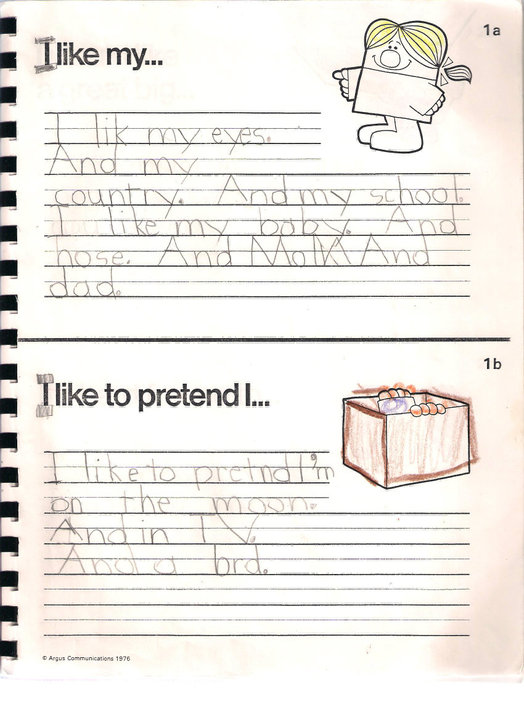 1a
I like my...
I lik my eyes.
And my
country. And my school.
I like my baby. And
hose. And MoM And
dad.
1b
I like to pretend I...
I like to pretnd I'm
on the moon.
And in TV.
And a brd.
© Argus Communications 1976